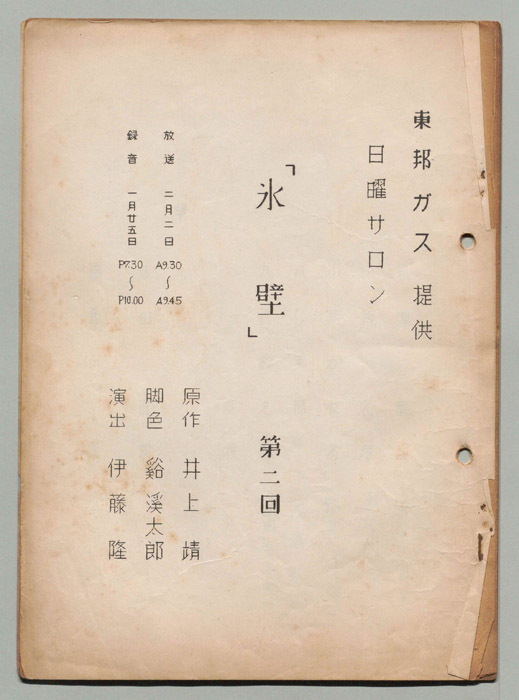 東邦ガス 提供
日曜サロン
「氷壁」 第二回
原作 井上 靖
脚色 谿 溪太郎
演出 伊藤 隆
放送 二月二日 A9.30〜A9.45
録音 一月廿五日 P7.30〜P10.00